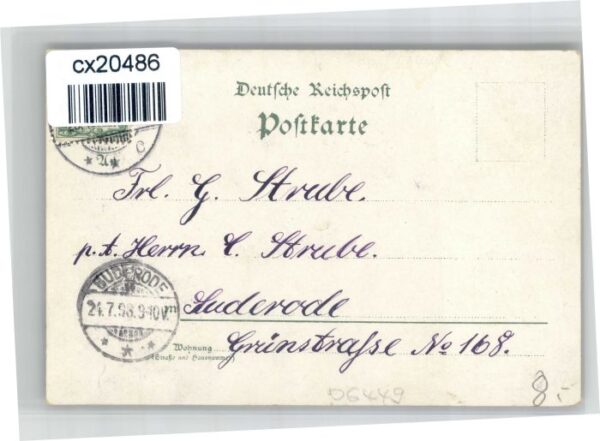 cx20486
Deutsche Reichspost
Postkarte
C
Frl. G. Strube.
p. t. Herrn. C. Strube.
SUDERODE
21.7.98.9-10V.
Suderode
Wohnung
(Straße und Hausnummer)
Grünstraße No 168.
D6449
8.-